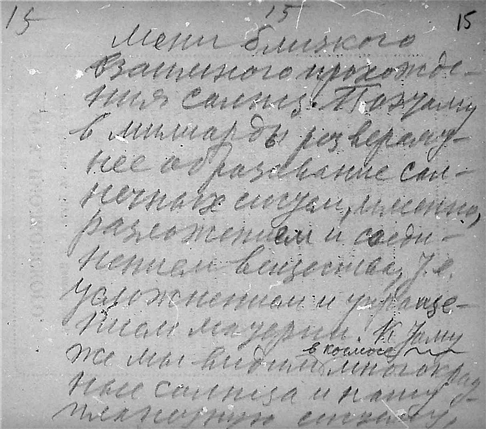 15 15 15
мени близкого
взаимного прохожде-
ния солнц. Поэтому
в милиарды раз вероят-
нее образование сол-
нечных систем, именно,
разложением и соеди-
нением вещества, т.е.
усложнением и упроще-
нием материи. К тому
же мы видим в космосе многократ-
ные солнца и нашу
планетную систему,